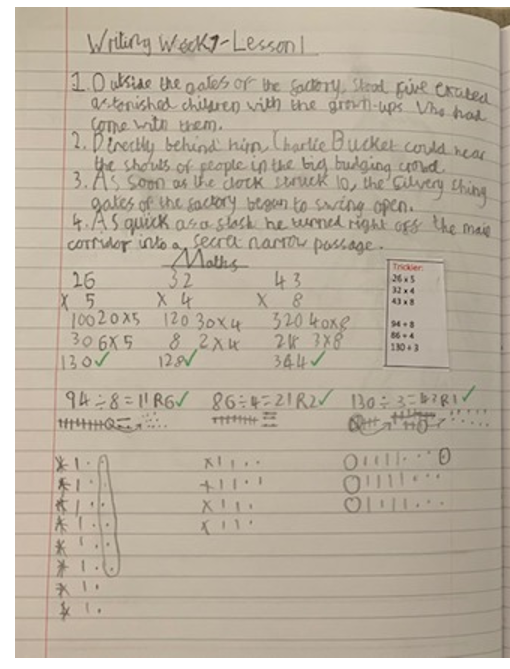 Writing Week 7-Lesson 1
1. Outside the gates of the factory, stood five excited
astonished children with the grown-ups who had
come with them.
2. Directly behind him Charlie Bucket could hear
the shouts of people in the big budging crowd.
3. As soon as the clock struck 10, the silvery shing
gates of the factory began to swing open.
4. As quick as a flash he turned right off the main
corridor into a secret narrow passage.
Maths
26 32 43
x 5 x 4 x 8
100 20x5 120 30x4 320 40x8
30 6x5 8 2x4 24 3x8
130✓ 128✓ 344✓
Trickier:
26 x 5
32 x 4
43 x 8
94 ÷ 8
86 ÷ 4
130 ÷ 3
94÷8=11R6✓ 86÷4=21R2✓ 130÷3=43R1✓